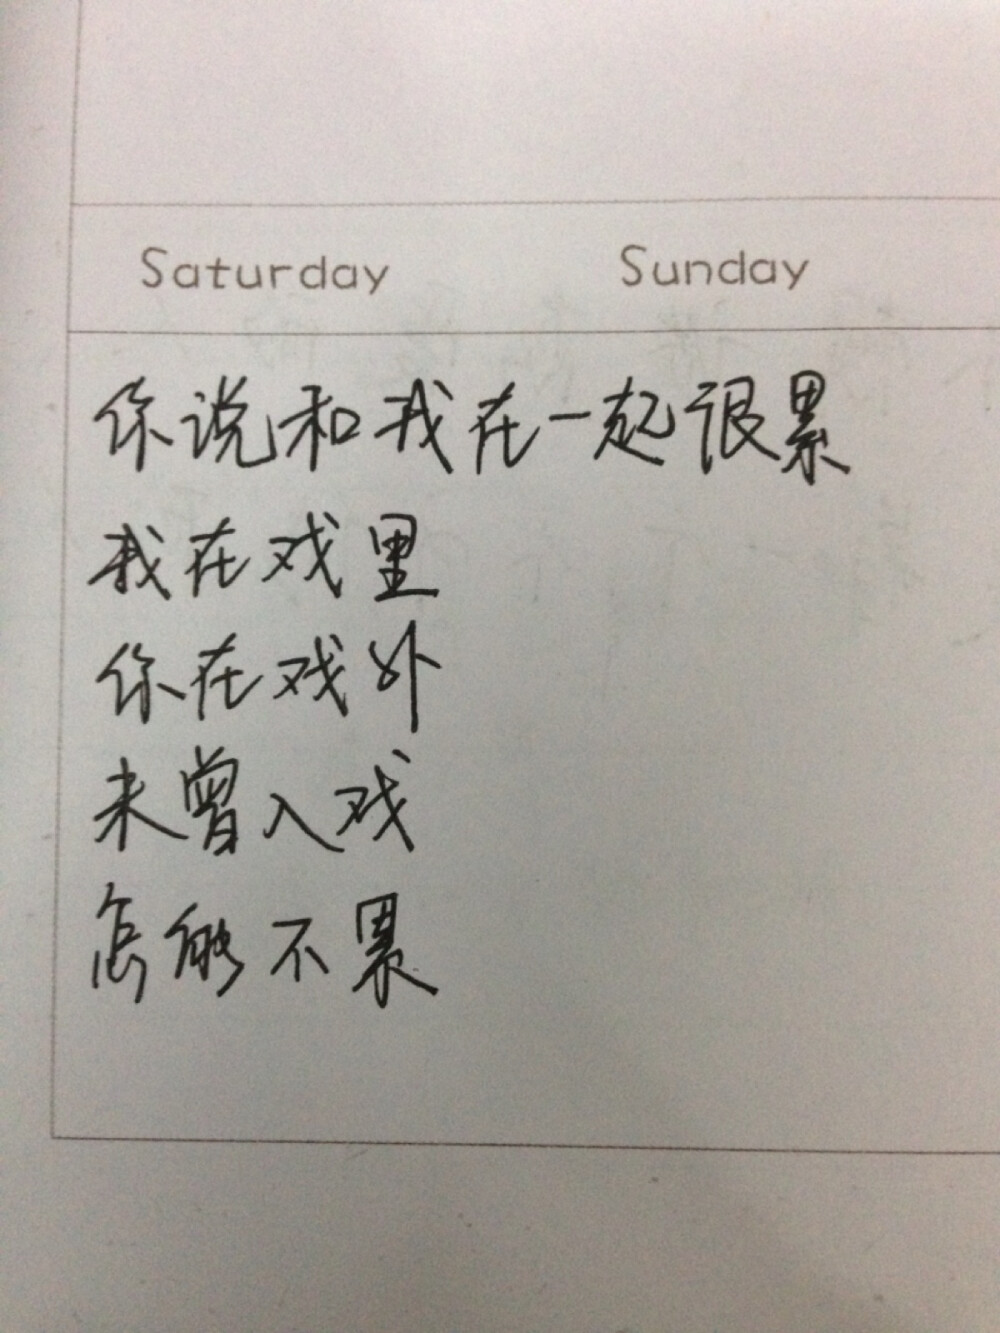 Saturday Sunday
你说和我在一起很累
我在戏里
你在戏外
未曾入戏
怎能不累